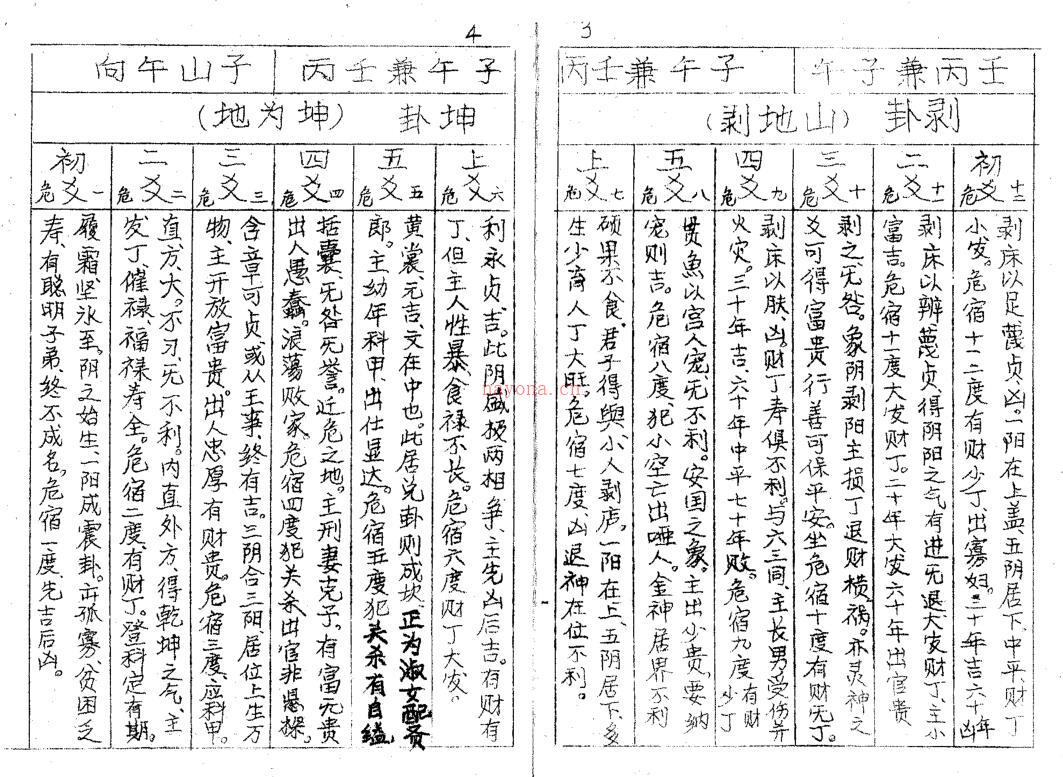 3
壬丙兼子午
子午兼壬丙
剥卦（山地剥）
初爻 危十二
剥床以足蔑贞、凶。一阳在上盖、五阴居下、中平、财丁
小发。危宿十二度有财少丁、出寡妇。三十年吉六十年凶
二爻 危十一
剥床以辨蔑贞、得阴阳之气有进无退大发财丁、主小
富吉。危宿十一度大发财丁。二十年大发六十年出官贵
三爻 危十
剥之无咎。象阴剥阳主损丁退财横祸。亦灵神之
爻可得富贵行善可保平安。坐危宿十度有财无丁。
四爻 危九
剥床以肤、凶。财丁寿俱不利。与六三同、主长男受伤并
火灾。三十年吉、六十年中平七十年败。危宿九度有财少丁
五爻 危八
贯鱼以宫人宠、无不利。安国之象。主出少贵。要纳
宠则吉。危宿八度、犯小空亡出哑人。金神居界不利
上爻 危七
硕果不食、君子得舆、小人剥庐。一阳在上、五阴居下、多
生少育人丁大旺。危宿七度、凶退神在位不利。
4
子午兼壬丙
子山午向
坤卦（坤为地）
上爻 危六
利永贞、吉。此阴盛极两相争、主先凶后吉。有财有
丁、但主人性暴、食禄不长。危宿六度财丁大发。
五爻 危五
黄裳、元吉、文在中也。此居兑卦则成坎、正为淑女配贵
郎。主幼年科甲、出仕显达。危宿五度犯关杀有自缢
四爻 危四
括囊、无咎无誉。近危之地。主刑妻克子。有富无贵
出人愚蠢。浪荡败家。危宿四度犯关杀出官非恶操。
三爻 危三
含章可贞、或从王事、终有吉。三阴合三阳居位上生万
物、主开放富贵。出人忠厚有财贵。危宿三度、应科甲。
二爻 危二
直、方、大。不习、无不利。内直外方、得乾坤之气、主
发丁、催禄福禄寿全。危宿二度、有财丁。登科定有期。
初爻 危一
履霜、坚冰至。阴之始生、一阳成震卦。亦孤寡、贫困乏
寿、有聪明子弟、终不成名。危宿一度、先吉后凶。
nayona.cn